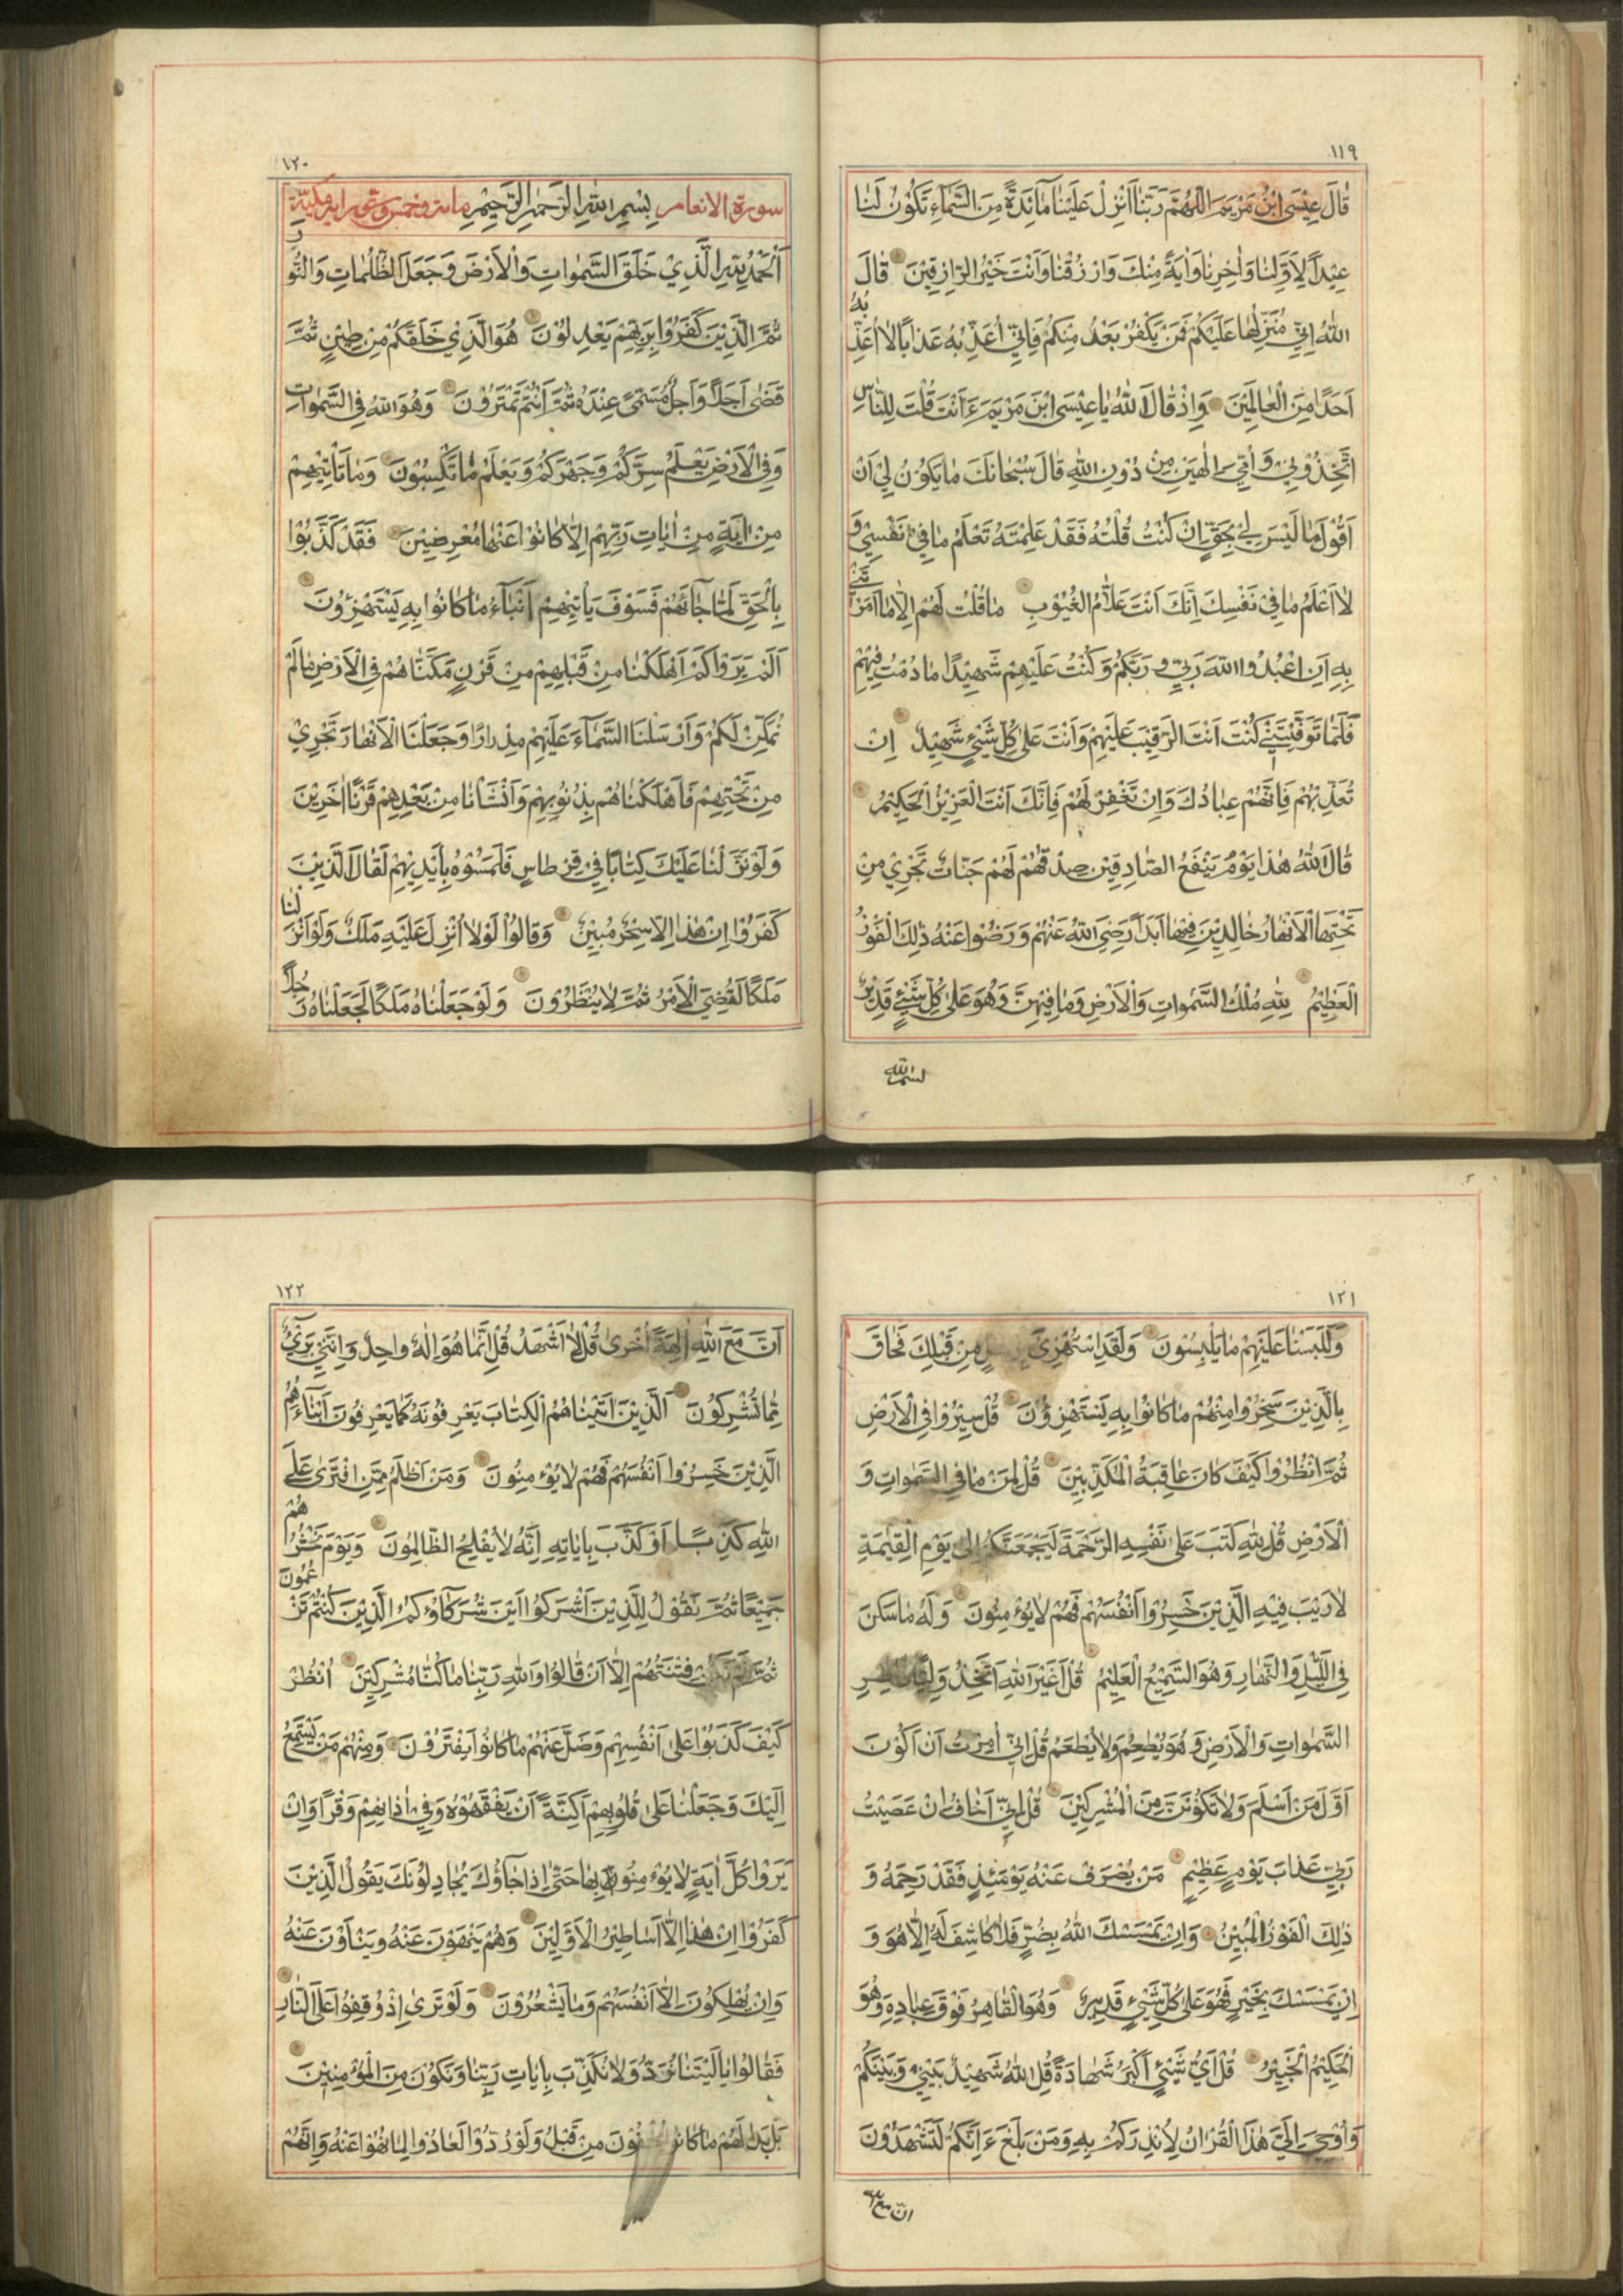 ١١٩
قٰالَ عِيْسَى ابْنُ مَرْيَمَ اللّٰهُمَّ رَبَّنٰا اَنْزِلْ عَلَيْنٰا مٰائِدَةً مِنَ السَّمٰاءِ تَكُوْنُ لَنٰا
عِيْداً لِاَوَّلِنٰا وَاٰخِرِنٰا وَاٰيَةً مِنْكَ وَارْزُقْنٰا وَاَنْتَ خَيْرُ الرّٰازِقِيْنَ قٰالَ
اللّٰهُ اِنِّيْ مُنَزِّلُهٰا عَلَيْكُمْ فَمَنْ يَكْفُرْ بَعْدُ مِنْكُمْ فَاِنِّيْ اُعَذِّبُهُ عَذٰاباً لاٰ اُعَذِّبُهُ
اَحَدًا مِنَ الْعٰالَمِيْنَ وَاِذْ قٰالَ اللّٰهُ يٰا عِيْسَى ابْنَ مَرْيَمَ ءَاَنْتَ قُلْتَ لِلنّٰاسِ
اتَّخِذُوْنِيْ وَاُمِّيَ اِلٰهَيْنِ مِنْ دُوْنِ اللّٰهِ قٰالَ سُبْحٰانَكَ مٰا يَكُوْنُ لِيْ اَنْ
اَقُوْلَ مٰا لَيْسَ لِيْ بِحَقٍّ اِنْ كُنْتُ قُلْتُهُ فَقَدْ عَلِمْتَهُ تَعْلَمُ مٰا فِيْ نَفْسِيْ وَ
لاٰ اَعْلَمُ مٰا فِيْ نَفْسِكَ اِنَّكَ اَنْتَ عَلاّٰمُ الْغُيُوْبِ مٰا قُلْتُ لَهُمْ اِلاّٰ مٰا اَمَرْتَنِيْ
بِهِ اَنِ اعْبُدُوا اللّٰهَ رَبِّيْ وَرَبَّكُمْ وَكُنْتُ عَلَيْهِمْ شَهِيْدًا مٰا دُمْتُ فِيْهِمْ
فَلَمّٰا تَوَفَّيْتَنِيْ كُنْتَ اَنْتَ الرَّقِيْبَ عَلَيْهِمْ وَاَنْتَ عَلٰى كُلِّ شَيْئٍ شَهِيْدٌ اِنْ
تُعَذِّبْهُمْ فَاِنَّهُمْ عِبٰادُكَ وَاِنْ تَغْفِرْ لَهُمْ فَاِنَّكَ اَنْتَ الْعَزِيْزُ الْحَكِيْمُ
قٰالَ اللّٰهُ هٰذٰا يَوْمُ يَنْفَعُ الصّٰادِقِيْنَ صِدْقُهُمْ لَهُمْ جَنّٰاتٌ تَجْرِيْ مِنْ
تَحْتِهَا الْاَنْهٰارُ خٰالِدِيْنَ فِيْهٰا اَبَداً رَضِيَ اللّٰهُ عَنْهُمْ وَرَضُوْا عَنْهُ ذٰلِكَ الْفَوْزُ
الْعَظِيْمُ لِلّٰهِ مُلْكُ السَّمٰوٰاتِ وَالْاَرْضِ وَمٰا فِيْهِنَّ وَهُوَ عَلٰى كُلِّ شَيْئٍ قَدِيْرٌ
بسم الله
١٢٠
سورة الانعام بِسْمِ اللّٰهِ الرَّحْمٰنِ الرَّحِيْمِ مائة وخمس وستون اية مكيّة
اَلْحَمْدُ لِلّٰهِ الَّذِيْ خَلَقَ السَّمٰوٰاتِ وَالْاَرْضَ وَجَعَلَ الظُّلُمٰاتِ وَالنُّوْرَ
ثُمَّ الَّذِيْنَ كَفَرُوْا بِرَبِّهِمْ يَعْدِلُوْنَ هُوَ الَّذِيْ خَلَقَكُمْ مِنْ طِيْنٍ ثُمَّ
قَضٰى اَجَلًا وَاَجَلٌ مُسَمًّى عِنْدَهُ ثُمَّ اَنْتُمْ تَمْتَرُوْنَ وَهُوَ اللّٰهُ فِي السَّمٰوٰاتِ
وَفِي الْاَرْضِ يَعْلَمُ سِرَّكُمْ وَجَهْرَكُمْ وَيَعْلَمُ مٰا تَكْسِبُوْنَ وَمٰا تَأْتِيْهِمْ
مِنْ اٰيَةٍ مِنْ اٰيٰاتِ رَبِّهِمْ اِلاّٰ كٰانُوْا عَنْهٰا مُعْرِضِيْنَ فَقَدْ كَذَّبُوْا
بِالْحَقِّ لَمّٰا جٰائَهُمْ فَسَوْفَ يَأْتِيْهِمْ اَنْبٰاءُ مٰا كٰانُوْا بِهِ يَسْتَهْزِئُوْنَ
اَلَمْ يَرَوْا كَمْ اَهْلَكْنٰا مِنْ قَبْلِهِمْ مِنْ قَرْنٍ مَكَّنّٰاهُمْ فِي الْاَرْضِ مٰا لَمْ
نُمَكِّنْ لَكُمْ وَاَرْسَلْنَا السَّمٰاءَ عَلَيْهِمْ مِدْرٰارًا وَجَعَلْنَا الْاَنْهٰارَ تَجْرِيْ
مِنْ تَحْتِهِمْ فَاَهْلَكْنٰاهُمْ بِذُنُوْبِهِمْ وَاَنْشَأْنٰا مِنْ بَعْدِهِمْ قَرْنًا اٰخَرِيْنَ
وَلَوْ نَزَّلْنٰا عَلَيْكَ كِتٰابًا فِيْ قِرْطٰاسٍ فَلَمَسُوْهُ بِاَيْدِيْهِمْ لَقٰالَ الَّذِيْنَ
كَفَرُوْا اِنْ هٰذٰا اِلاّٰ سِحْرٌ مُبِيْنٌ وَقٰالُوْا لَوْلاٰ اُنْزِلَ عَلَيْهِ مَلَكٌ وَلَوْ اَنْزَلْنٰا
مَلَكًا لَقُضِيَ الْاَمْرُ ثُمَّ لاٰ يُنْظَرُوْنَ وَلَوْ جَعَلْنٰاهُ مَلَكًا لَجَعَلْنٰاهُ رَجُلاً
١٢١
وَلَلَبَسْنٰا عَلَيْهِمْ مٰا يَلْبِسُوْنَ وَلَقَدِ اسْتُهْزِئَ بِرُسُلٍ مِنْ قَبْلِكَ فَحٰاقَ
بِالَّذِيْنَ سَخِرُوْا مِنْهُمْ مٰا كٰانُوْا بِهِ يَسْتَهْزِؤُنَ قُلْ سِيْرُوْا فِي الْاَرْضِ
ثُمَّ انْظُرُوْا كَيْفَ كٰانَ عٰاقِبَةُ الْمُكَذِّبِيْنَ قُلْ لِمَنْ مٰا فِي السَّمٰوٰاتِ وَ
الْاَرْضِ قُلْ لِلّٰهِ كَتَبَ عَلٰى نَفْسِهِ الرَّحْمَةَ لَيَجْمَعَنَّكُمْ اِلٰى يَوْمِ الْقِيٰمَةِ
لاٰ رَيْبَ فِيْهِ الَّذِيْنَ خَسِرُوْا اَنْفُسَهُمْ فَهُمْ لاٰ يُؤْمِنُوْنَ وَلَهُ مٰا سَكَنَ
فِي اللَّيْلِ وَالنَّهٰارِ وَهُوَ السَّمِيْعُ الْعَلِيْمُ قُلْ اَغَيْرَ اللّٰهِ اَتَّخِذُ وَلِيًّا فٰاطِرِ
السَّمٰوٰاتِ وَالْاَرْضِ وَهُوَ يُطْعِمُ وَلاٰ يُطْعَمُ قُلْ اِنِّيْ اُمِرْتُ اَنْ اَكُوْنَ
اَوَّلَ مَنْ اَسْلَمَ وَلاٰ تَكُوْنَنَّ مِنَ الْمُشْرِكِيْنَ قُلْ اِنِّيْ اَخٰافُ اِنْ عَصَيْتُ
رَبِّيْ عَذٰابَ يَوْمٍ عَظِيْمٍ مَنْ يُصْرَفْ عَنْهُ يَوْمَئِذٍ فَقَدْ رَحِمَهُ وَ
ذٰلِكَ الْفَوْزُ الْمُبِيْنُ وَاِنْ يَمْسَسْكَ اللّٰهُ بِضُرٍّ فَلاٰ كٰاشِفَ لَهُ اِلاّٰ هُوَ وَ
اِنْ يَمْسَسْكَ بِخَيْرٍ فَهُوَ عَلٰى كُلِّ شَيْئٍ قَدِيْرٌ وَهُوَ الْقٰاهِرُ فَوْقَ عِبٰادِهِ وَهُوَ
الْحَكِيْمُ الْخَبِيْرُ قُلْ اَيُّ شَيْئٍ اَكْبَرُ شَهٰادَةً قُلِ اللّٰهُ شَهِيْدٌ بَيْنِيْ وَبَيْنَكُمْ
وَاُوْحِيَ اِلَيَّ هٰذَا الْقُرْاٰنُ لِاُنْذِرَكُمْ بِهِ وَمَنْ بَلَغَ ءَاِنَّكُمْ لَتَشْهَدُوْنَ
انّ مع الله
١٢٢
اَنَّ مَعَ اللّٰهِ اٰلِهَةً اُخْرٰى قُلْ لاٰ اَشْهَدُ قُلْ اِنَّمٰا هُوَ اِلٰهٌ وٰاحِدٌ وَاِنَّنِيْ بَرِيْءٌ
مِمّٰا تُشْرِكُوْنَ اَلَّذِيْنَ اٰتَيْنٰاهُمُ الْكِتٰابَ يَعْرِفُوْنَهُ كَمٰا يَعْرِفُوْنَ اَبْنٰاءَهُمُ
الَّذِيْنَ خَسِرُوْا اَنْفُسَهُمْ فَهُمْ لاٰ يُؤْمِنُوْنَ وَمَنْ اَظْلَمُ مِمَّنِ افْتَرٰى عَلَى
اللّٰهِ كَذِبًا اَوْ كَذَّبَ بِاٰيٰاتِهِ اِنَّهُ لاٰ يُفْلِحُ الظّٰالِمُوْنَ وَيَوْمَ نَحْشُرُهُمْ
جَمِيْعًا ثُمَّ نَقُوْلُ لِلَّذِيْنَ اَشْرَكُوْا اَيْنَ شُرَكٰاؤُكُمُ الَّذِيْنَ كُنْتُمْ تَزْعُمُوْنَ
ثُمَّ لَمْ تَكُنْ فِتْنَتُهُمْ اِلاّٰ اَنْ قٰالُوْا وَاللّٰهِ رَبِّنٰا مٰا كُنّٰا مُشْرِكِيْنَ اُنْظُرْ
كَيْفَ كَذَبُوْا عَلٰى اَنْفُسِهِمْ وَضَلَّ عَنْهُمْ مٰا كٰانُوْا يَفْتَرُوْنَ وَمِنْهُمْ مَنْ يَسْتَمِعُ
اِلَيْكَ وَجَعَلْنٰا عَلٰى قُلُوْبِهِمْ اَكِنَّةً اَنْ يَفْقَهُوْهُ وَفِيْ اٰذٰانِهِمْ وَقْرًا وَاِنْ
يَرَوْا كُلَّ اٰيَةٍ لاٰ يُؤْمِنُوْا بِهٰا حَتّٰى اِذٰا جٰاؤُكَ يُجٰادِلُوْنَكَ يَقُوْلُ الَّذِيْنَ
كَفَرُوْا اِنْ هٰذٰا اِلاّٰ اَسٰاطِيْرُ الْاَوَّلِيْنَ وَهُمْ يَنْهَوْنَ عَنْهُ وَيَنْاَوْنَ عَنْهُ
وَاِنْ يُهْلِكُوْنَ اِلاّٰ اَنْفُسَهُمْ وَمٰا يَشْعُرُوْنَ وَلَوْ تَرٰى اِذْ وُقِفُوْا عَلَى النّٰارِ
فَقٰالُوْا يٰا لَيْتَنٰا نُرَدُّ وَلاٰ نُكَذِّبَ بِاٰيٰاتِ رَبِّنٰا وَنَكُوْنَ مِنَ الْمُؤْمِنِيْنَ
بَلْ بَدٰا لَهُمْ مٰا كٰانُوْا يُخْفُوْنَ مِنْ قَبْلُ وَلَوْ رُدُّوْا لَعٰادُوْا لِمٰا نُهُوْا عَنْهُ وَاِنَّهُمْ